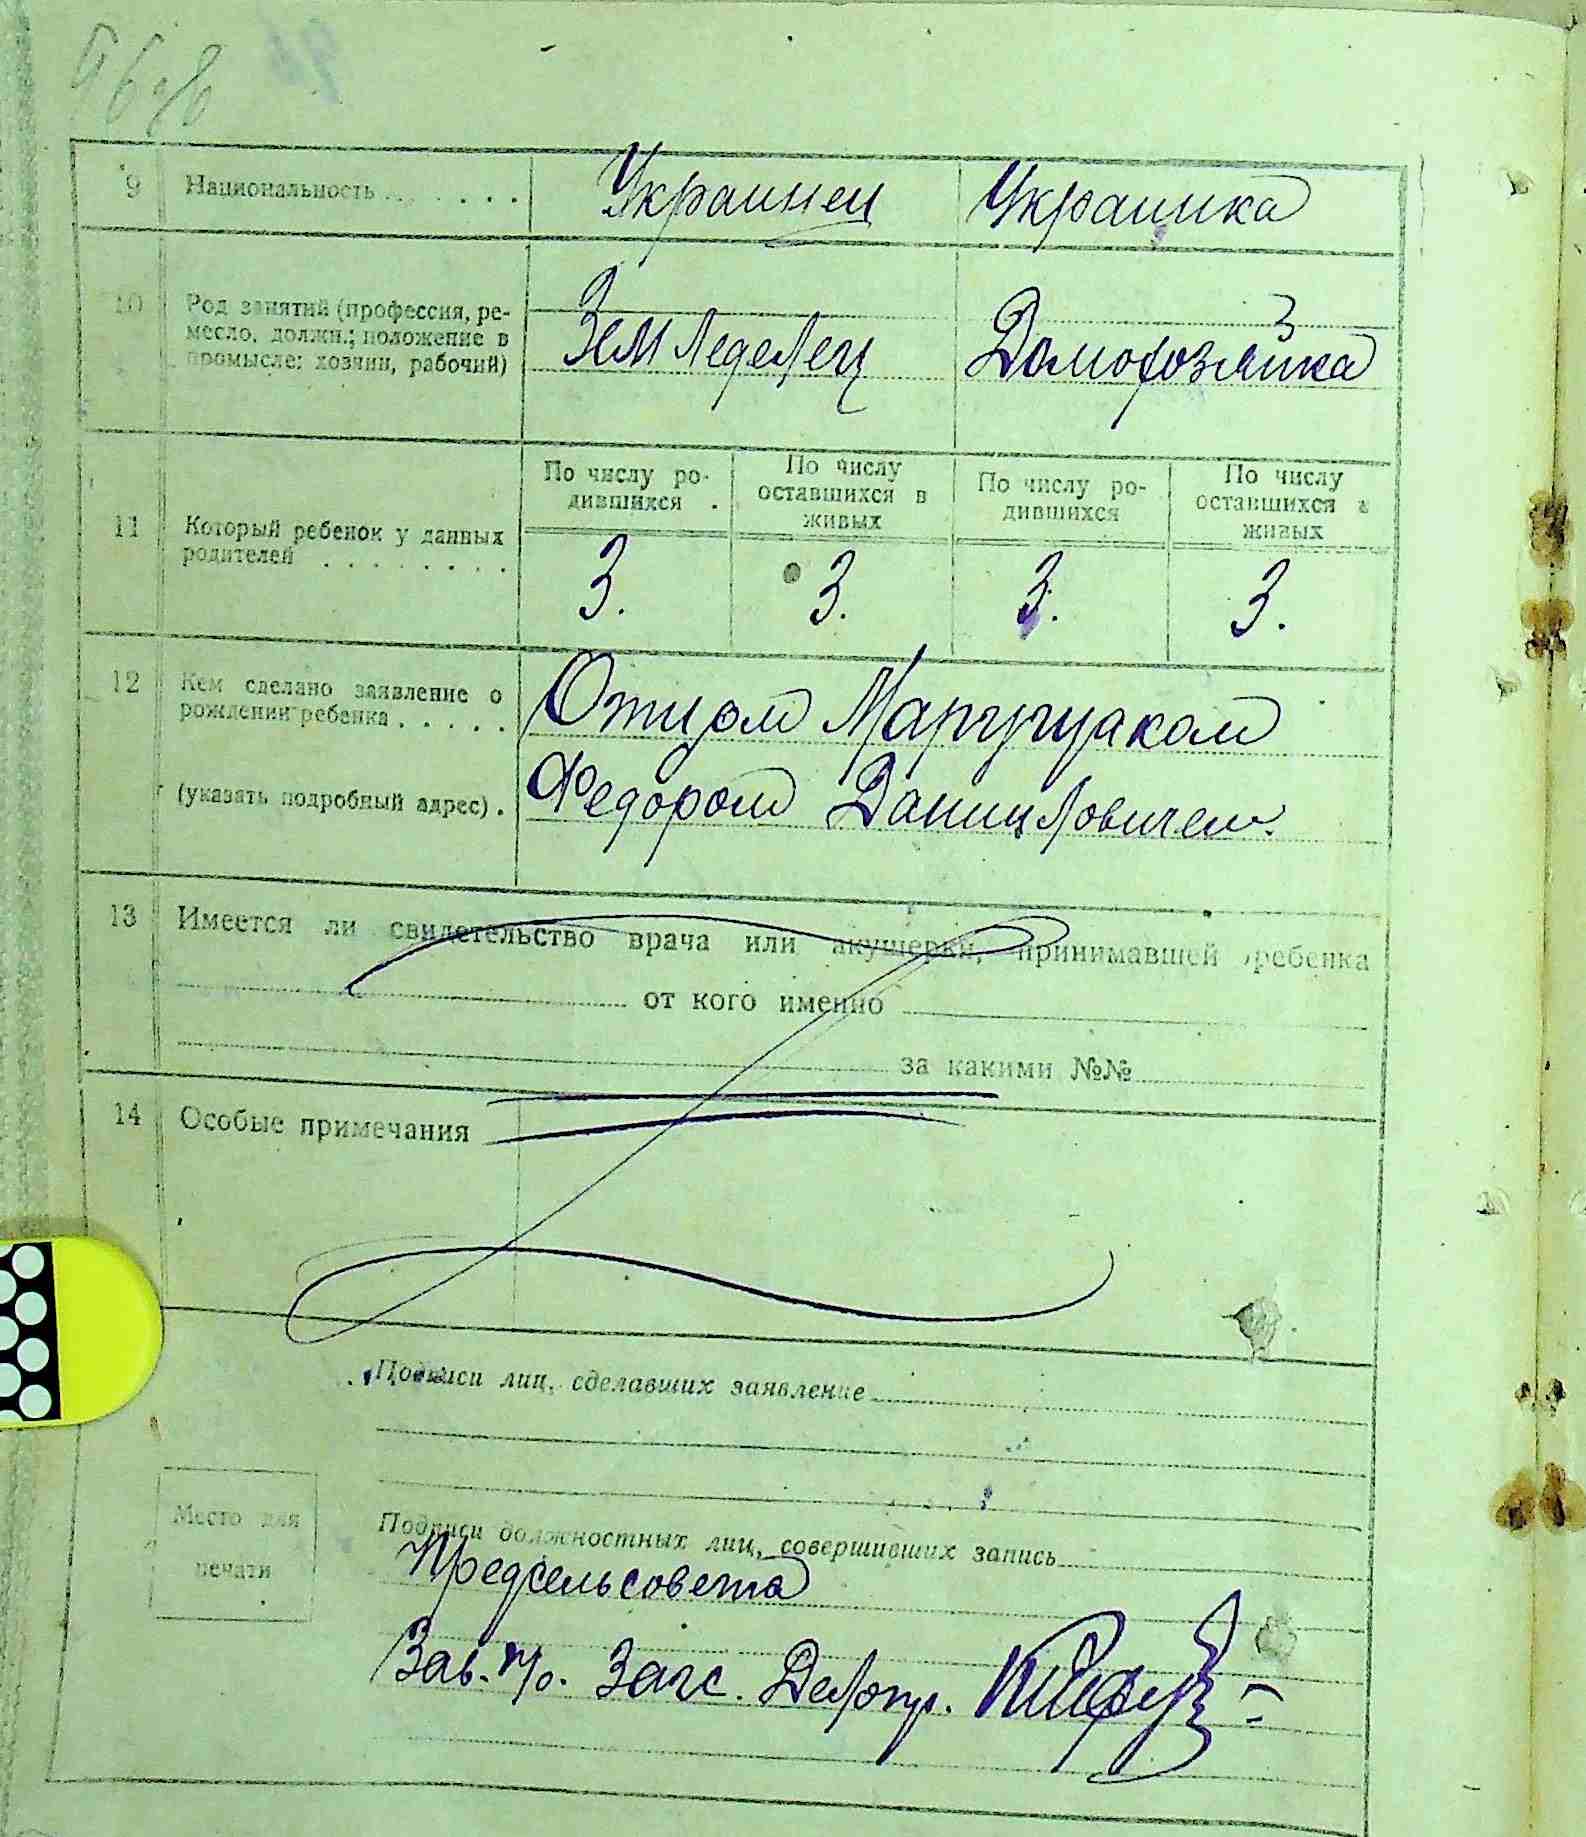 9 Национальность Украинец Украинка
10 Род занятий (профессия, ре-
месло, должн.; положение в
промысле: хозяин, рабочий)
Земледелец Домохозяйка
11 Который ребенок у данных
родителей
По числу ро-
дившихся
По числу
оставшихся в
живых
По числу ро-
дившихся
По числу
оставшихся в
живых
3. 3. 3. 3.
12 Кем сделано заявление о
рождении ребенка
(указать подробный адрес).
Отцом
Федором Даниловичем.
13 Имеется ли свидетельство врача или акушерки, принимавшей ребенка
от кого именно
за какими №№
14 Особые примечания
Подписи лиц, сделавших заявление
Место для
печати
Подписи должностных лиц, совершивших запись
Предсельсовета
Зав. п/о. Загс. Делопр.